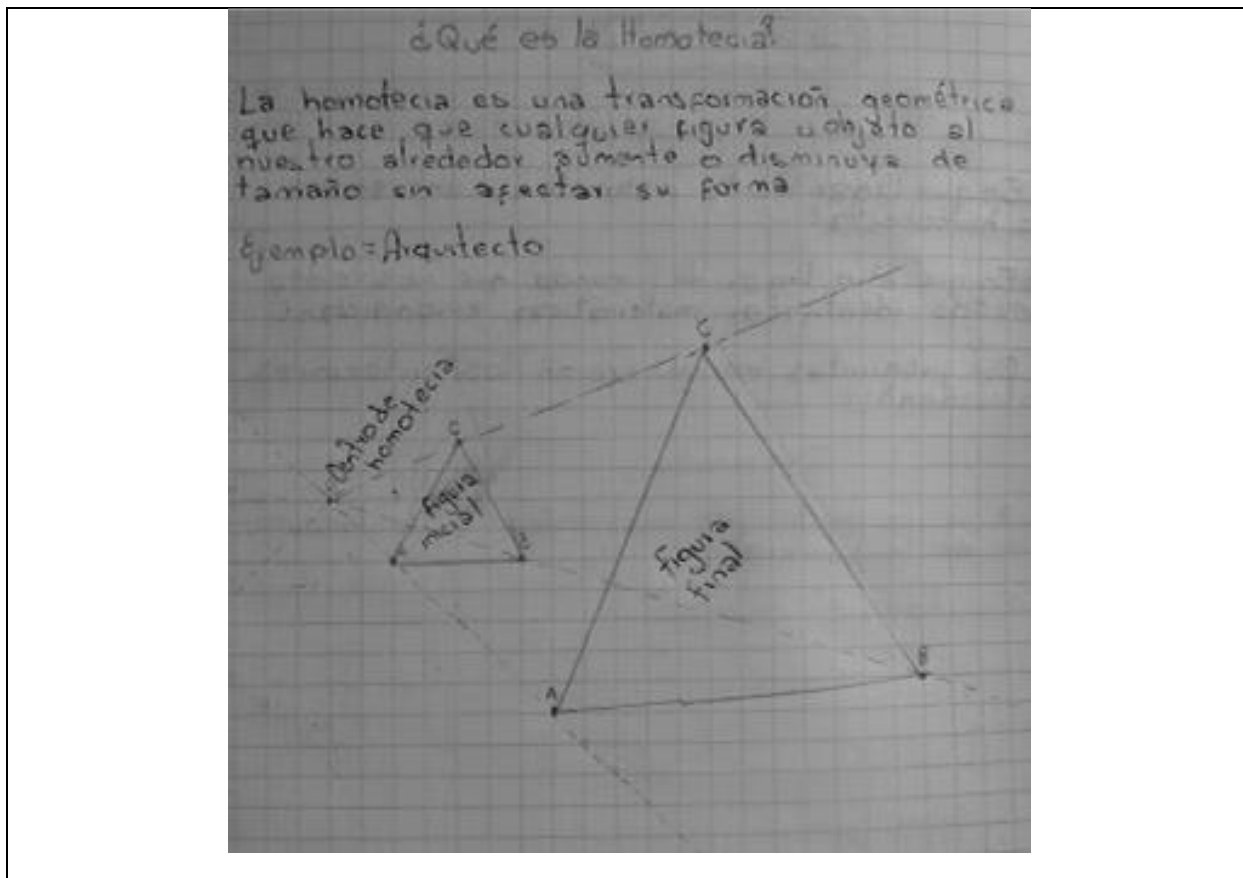 ¿Qué es la Homotecia?
La homotecia es una transformación geométrica
que hace que cualquier figura u objeto al
nuestro alrededor aumente o disminuya de
tamaño sin afectar su forma
Ejemplo = Arquitecto
C
Centro de
homotecia
C
Figura
inicial
Figura
final
A
B